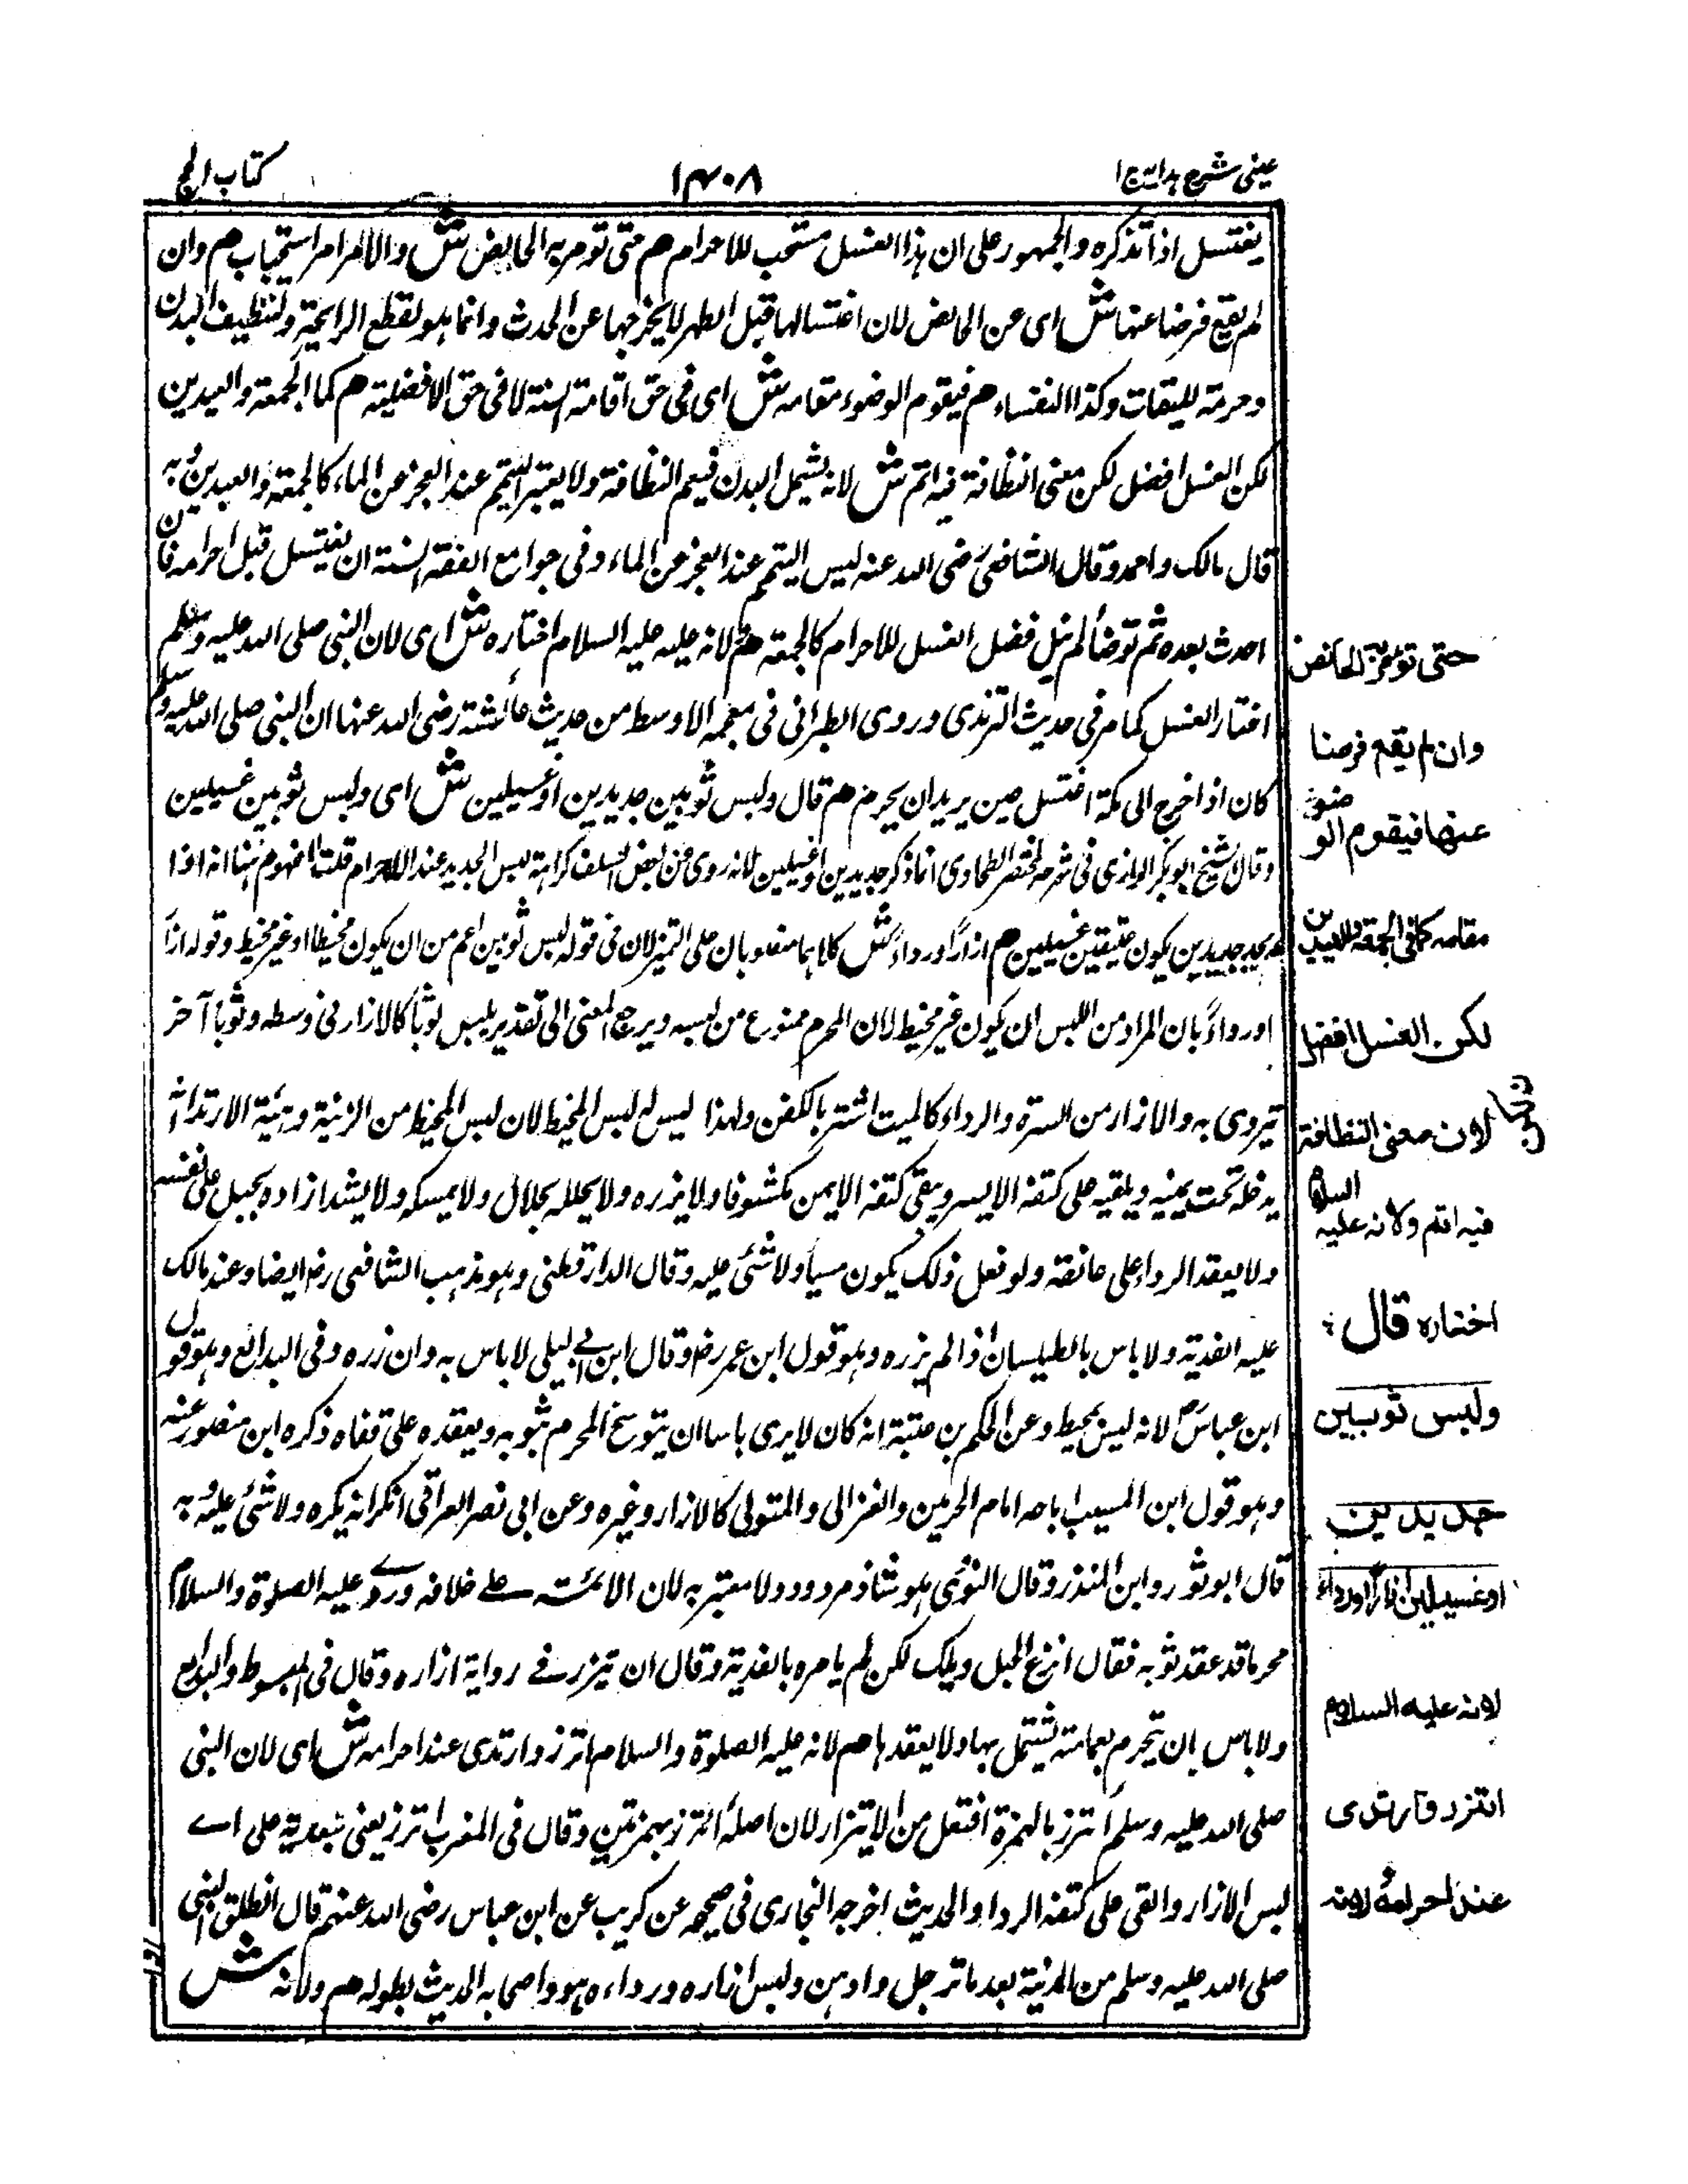 عینی شرح ہدایۃ ج ۱
۱۴۰۸
کتاب الحج
یغتسل اذا تذکرہ والجمہور علی ان ہذا الغسل مستحب للاحرام ھم حتی تومر بہ الحایض ش والامر امر استحباب ھم وان
لم یقع فرضا عنہا ش ای عن الحایض لان اغتسالہا قبل الطہر لا یخرجہا عن الحدث وانما ہو لقطع الرایحۃ ولتنظیف البدن
وحرمۃ للمیقات وکذا النفساء ھم فیقوم الوضوء مقامہ ش ای فی حق اقامۃ السنۃ لا فی حق الافضلیۃ ھم کما الجمعۃ والعیدین
لکن الغسل افضل لکن معنی النظافۃ فیہ اتم ش لانہ یشمل البدن فیعم النظافۃ ولا یعتبر التیمم عند العجز عن الماء کالجمعۃ والعیدین وبہ
قال مالک واحمد وقال الشافعی رضی اللہ عنہ لیس التیمم عند العجز عن الماء وفی جوامع الفقہ السنۃ ان یغتسل قبل احرامہ فان
احدث بعدہ ثم توضأ لم ینل فضل الغسل للاحرام کالجمعۃ ھم لانہ علیہ علیہ السلام اختارہ ش ای لان النبی صلی اللہ علیہ وسلم
اختار الغسل کما مر فی حدیث الترمذی وروی الطبرانی فی معجمہ الاوسط من حدیث عائشۃ رضی اللہ عنہا ان النبی صلی اللہ علیہ وسلم
کان اذا خرج الی مکۃ اغتسل حین یرید ان یحرم ھم قال ولبس ثوبین جدیدین او غسیلین ش ای ولبس ثوبین غسیلین
وقال الشیخ ابو بکر الرازی فی شرحہ لمختصر الطحاوی انما ذکر جدیدین او غسیلین لانہ روی عن بعض السلف کراہۃ لبس الجدید عند الاحرام قلت المفہوم ہہنا انہ اذا
لم یجد جدیدین یکون عتیقین غسیلین ھم ازارا ورداء ش کلاہما منصوبان علی التمیز لان فی قولہ لبس ثوبین اعم من ان یکون مخیطا او غیر مخیط وقولہ ازارا
اورداءً بان المراد من اللبس ان یکون غیر مخیط لان المحرم ممنوع من لبسہ ویرجع المعنی الی تقدیر یلبس ثوباً کالازار فی وسطہ وثوبا آخر
یتروی بہ والازار من السترۃ والرداء کالمیت اشتر بالکفن ولہذا لیس لہ لبس المخیط لان لبس المخیط من الزینۃ وہیئۃ الارتداء ان
یدخلہ تحت یمینہ ویلقیہ علی کتفہ الایسر ویبقی کتفہ الایمن مکشوفا ولا یزررہ ولا یحللہ بحلال ولا یمسکہ ولا یشد ازارہ بحبل علی نفسہ
ولا یعقد الرداء علی عاتقہ ولو فعل ذلک یکون مسیاً ولا شئ علیہ وقال الدارقطنی وہو مذہب الشافعی رض ایضا وعند مالک
علیہ الفدیۃ ولا باس بالطیلسان اذا لم یزررہ وہو قول ابن عمر رض وقال ابن ابی لیلی لا باس بہ وان زررہ وفی البدائع وہو قول
ابن عباس لانہ لیس بمحیط وعن الحکم بن عتبۃ انہ کان لا یری باسا ان یتوسخ المحرم بثوبہ ویعقدہ علی قفاہ ذکرہ ابن منصور عنہ
وہو قول ابن المسیب اباحہ امام الحرمین والغزالی والمتولی کالازار وغیرہ وعن ابی نصر العراقی انکر انہ یکرہ ولا شئ علیہ وبہ
قال ابو ثور وابن المنذر وقال النووی ہو شاذ مردود ولا معتبر بہ لان الائمۃ علی خلافہ ورای علیہ الصلوۃ والسلام
محرما قد عقد ثوبہ فقال انزع الحبل ویلک لکن لم یامرہ بالفدیۃ وقال ان یتزر فی روایۃ ازارہ وقال فی المبسوط والبدایع
ولا باس بان یتحرم بعمامتہ یشتمل بہا ولا یعقدہا ھم لانہ علیہ الصلوۃ والسلام اتزر وارتدی عند احرامہ ش ای لان النبی
صلی اللہ علیہ وسلم أتزر بالہمزۃ افتعل من الایتزار لان اصلہ ائتزر بہمزتین وقال فی المغرب اتزر یعنی بتعدیۃ علی ای
لبس الازار والقی علی کتفہ الردا والحدیث اخرجہ البخاری فی صحیحہ عن کریب عن ابن عباس رضی اللہ عنہم قال انطلق النبی
صلی اللہ علیہ وسلم من المدنیۃ بعد ما ترجل وادہن ولبس ازارہ ورداءہ ہو واصحابہ الحدیث بطولہ ھم ولانہ ش
حتی تومر بہ الحائض
وان لم یقع فرضا
عنھا فیقوم الوضوء
مقامہ کما فی الجمعۃ والعیدین
لکن الغسل افضل
لان معنی النظافۃ
فیہ اتم ولانہ علیہ السلام
اختارہ قال
ولبس ثوبین
جدیدین
او غسیلین ازارا ورداء
لانہ علیہ السلام
ائتزر وارتدی
عند احرامہ ولانہ